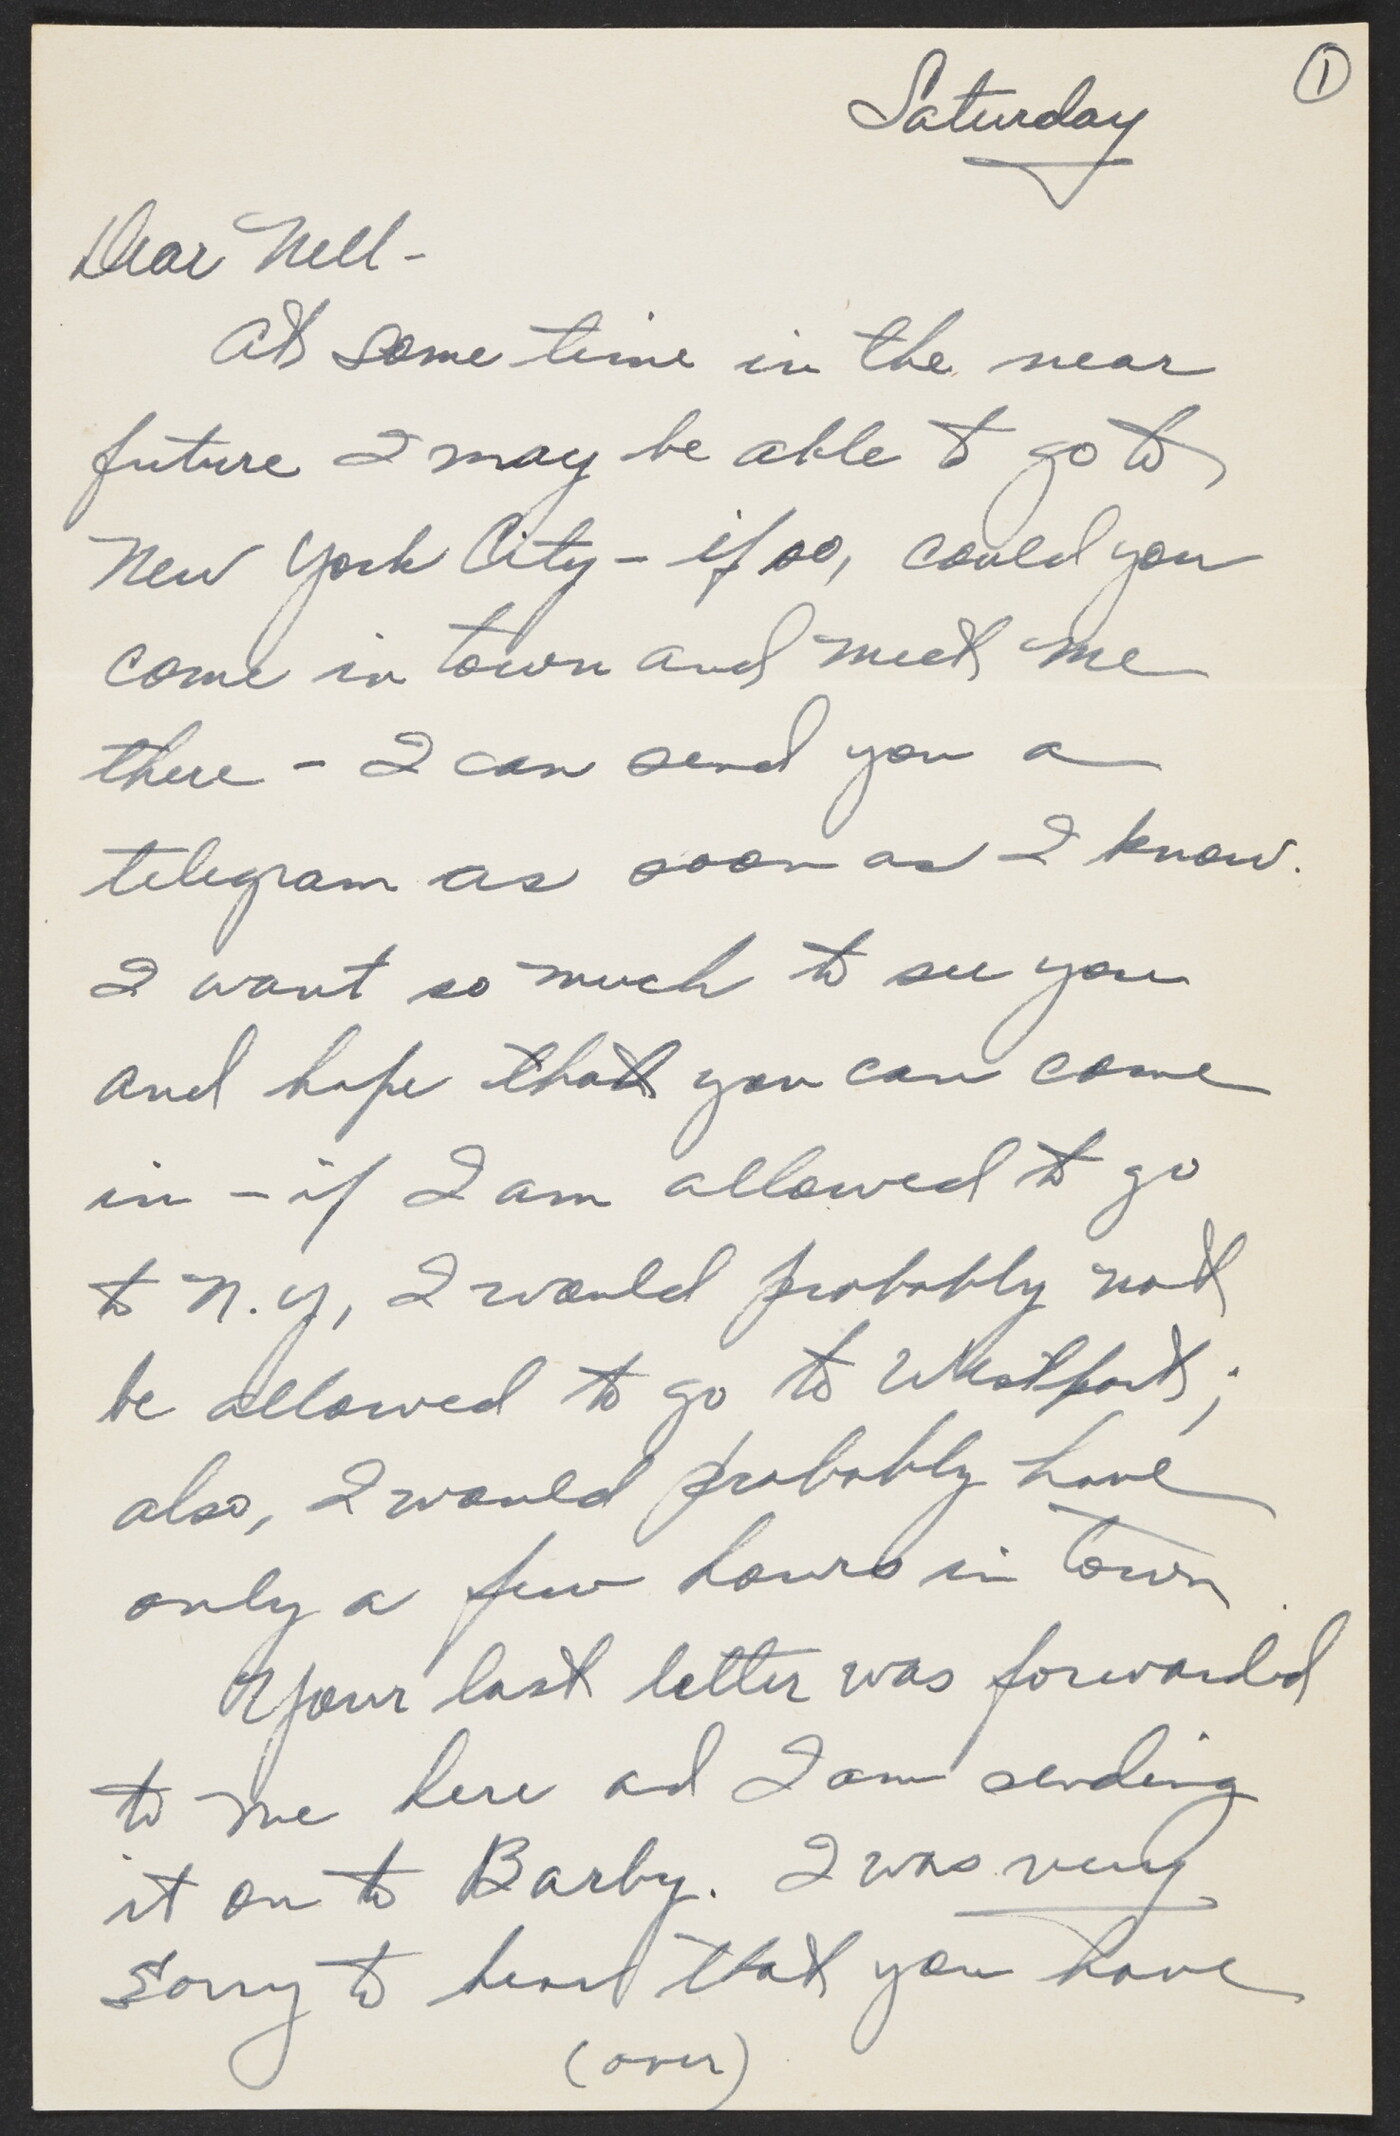 ①
Saturday
Dear Nell -
At some time in the near
future I may be able to go to
New York City - if so, could you
come in town and meet me
there - I can send you a
telegram as soon as I know.
I want so much to see you
and hope that you can come
in - if I am allowed to go
to N.Y, I would probably not
be allowed to go to Westport;
also, I would probably have
only a few hours in town
Your last letter was forwarded
to me here ad I am sending
it on to Barby. I was very
sorry to hear that you have
(over)